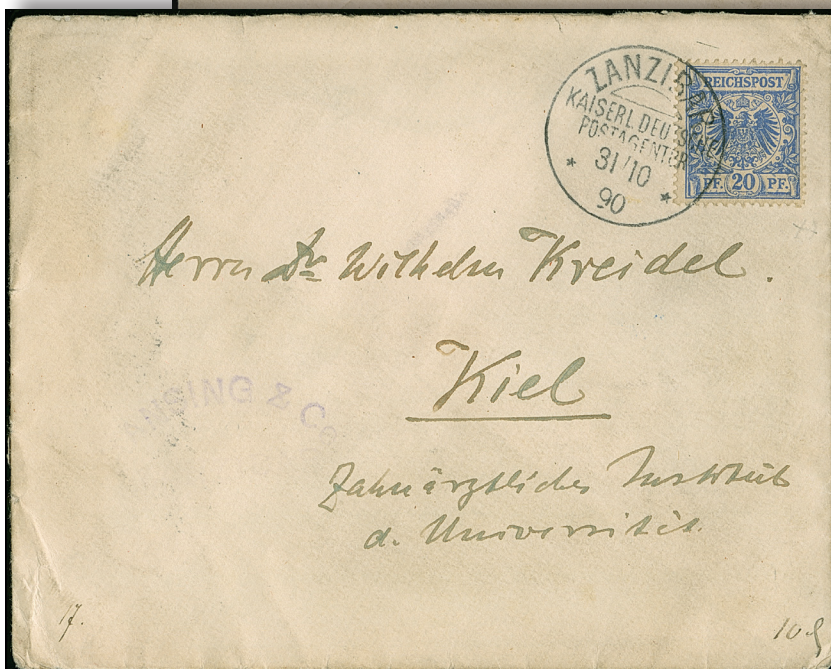 ZANZIBAR
KAISERL. DEUTSCHE
POSTAGENTUR
31/10
90
REICHSPOST
PF. 20 PF.
Herrn Dr Wilhelm Kreidel.
Kiel
ING & Co
Zahnärztliches Institut
d. Universität.
17.